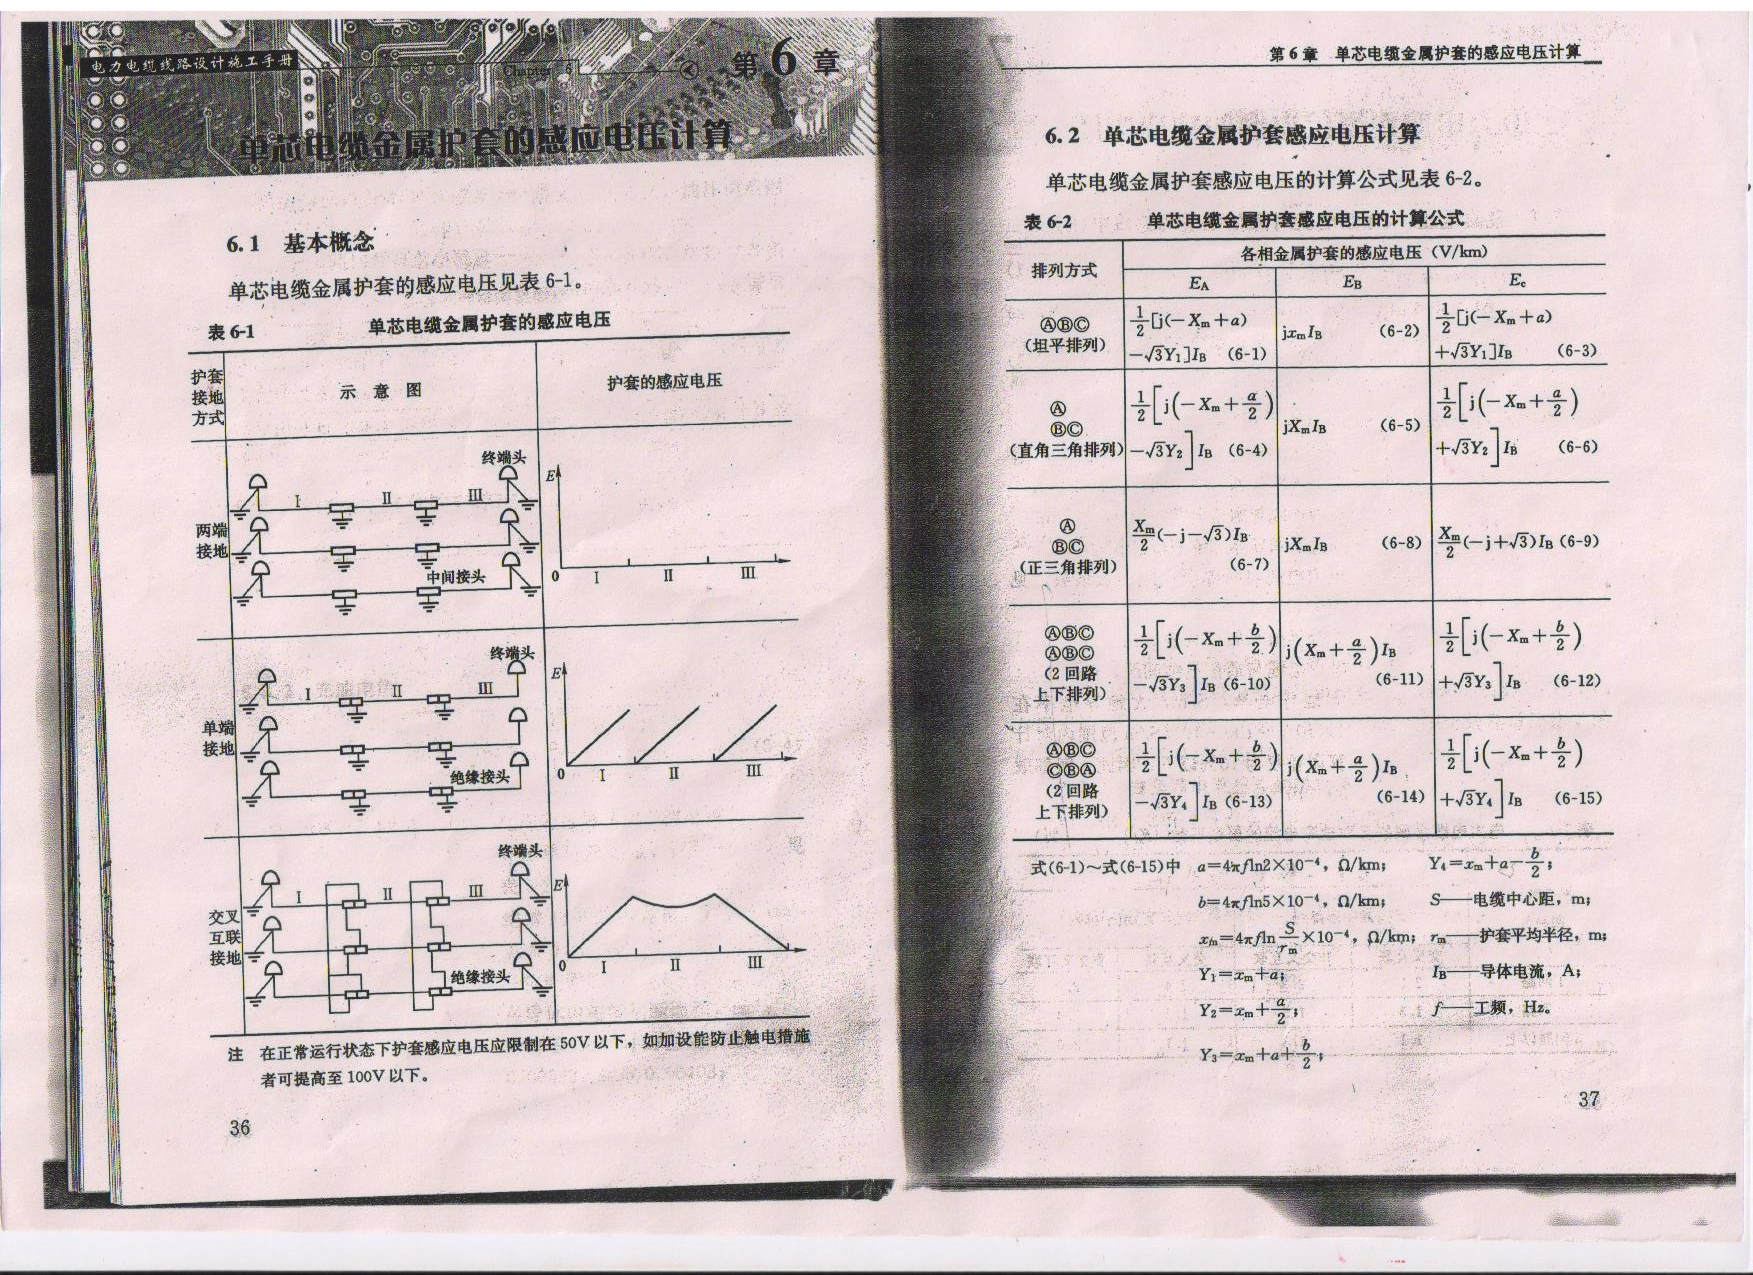 电力电缆线路设计施工手册
Chapter 6
第6章
单芯电缆金属护套的感应电压计算
6.1 基本概念
单芯电缆金属护套的感应电压见表 6-1。
表 6-1 单芯电缆金属护套的感应电压
护套接地方式 示意图 护套的感应电压
两端接地
终端头
I II III
中间接头
E
0 I II III
单端接地
终端头
I II III
绝缘接头
E
0 I II III
交叉互联接地
终端头
I II III
绝缘接头
E
0 I II III
注 在正常运行状态下护套感应电压应限制在 50V 以下，如加设能防止触电措施
者可提高至 100V 以下。
36
第 6 章 单芯电缆金属护套的感应电压计算
6.2 单芯电缆金属护套感应电压计算
单芯电缆金属护套感应电压的计算公式见表 6-2。
表 6-2 单芯电缆金属护套感应电压的计算公式
排列方式 各相金属护套的感应电压（V/km）
EA EB Ec
ⒶⒷⒸ
（坦平排列）
1/2[j(-Xm+a)
-√3Y1]IB (6-1)
jxmIB (6-2)
1/2[j(-Xm+a)
+√3Y1]IB (6-3)
Ⓐ
ⒷⒸ
（直角三角排列）
1/2[j(-Xm+a/2)
-√3Y2]IB (6-4)
jXmIB (6-5)
1/2[j(-Xm+a/2)
+√3Y2]IB (6-6)
Ⓐ
ⒷⒸ
（正三角排列）
Xm/2(-j-√3)IB
(6-7)
jXmIB (6-8)
Xm/2(-j+√3)IB (6-9)
ⒶⒷⒸ
ⒶⒷⒸ
（2 回路
上下排列）
1/2[j(-Xm+b/2)
-√3Y3]IB (6-10)
j(Xm+a/2)IB
(6-11)
1/2[j(-Xm+b/2)
+√3Y3]IB (6-12)
ⒶⒷⒸ
ⒸⒷⒶ
（2 回路
上下排列）
1/2[j(-Xm+b/2)
-√3Y4]IB (6-13)
j(Xm+a/2)IB
(6-14)
1/2[j(-Xm+b/2)
+√3Y4]IB (6-15)
式(6-1)～式(6-15)中 a=4πfln2×10⁻⁴，Ω/km； Y4=xm+a-b/2；
b=4πfln5×10⁻⁴，Ω/km； S——电缆中心距，m；
xm=4πfln S/rm×10⁻⁴，Ω/km； rm——护套平均半径，m；
Y1=xm+a； IB——导体电流，A；
Y2=xm+a/2； f——工频，Hz。
Y3=xm+a+b/2；
37